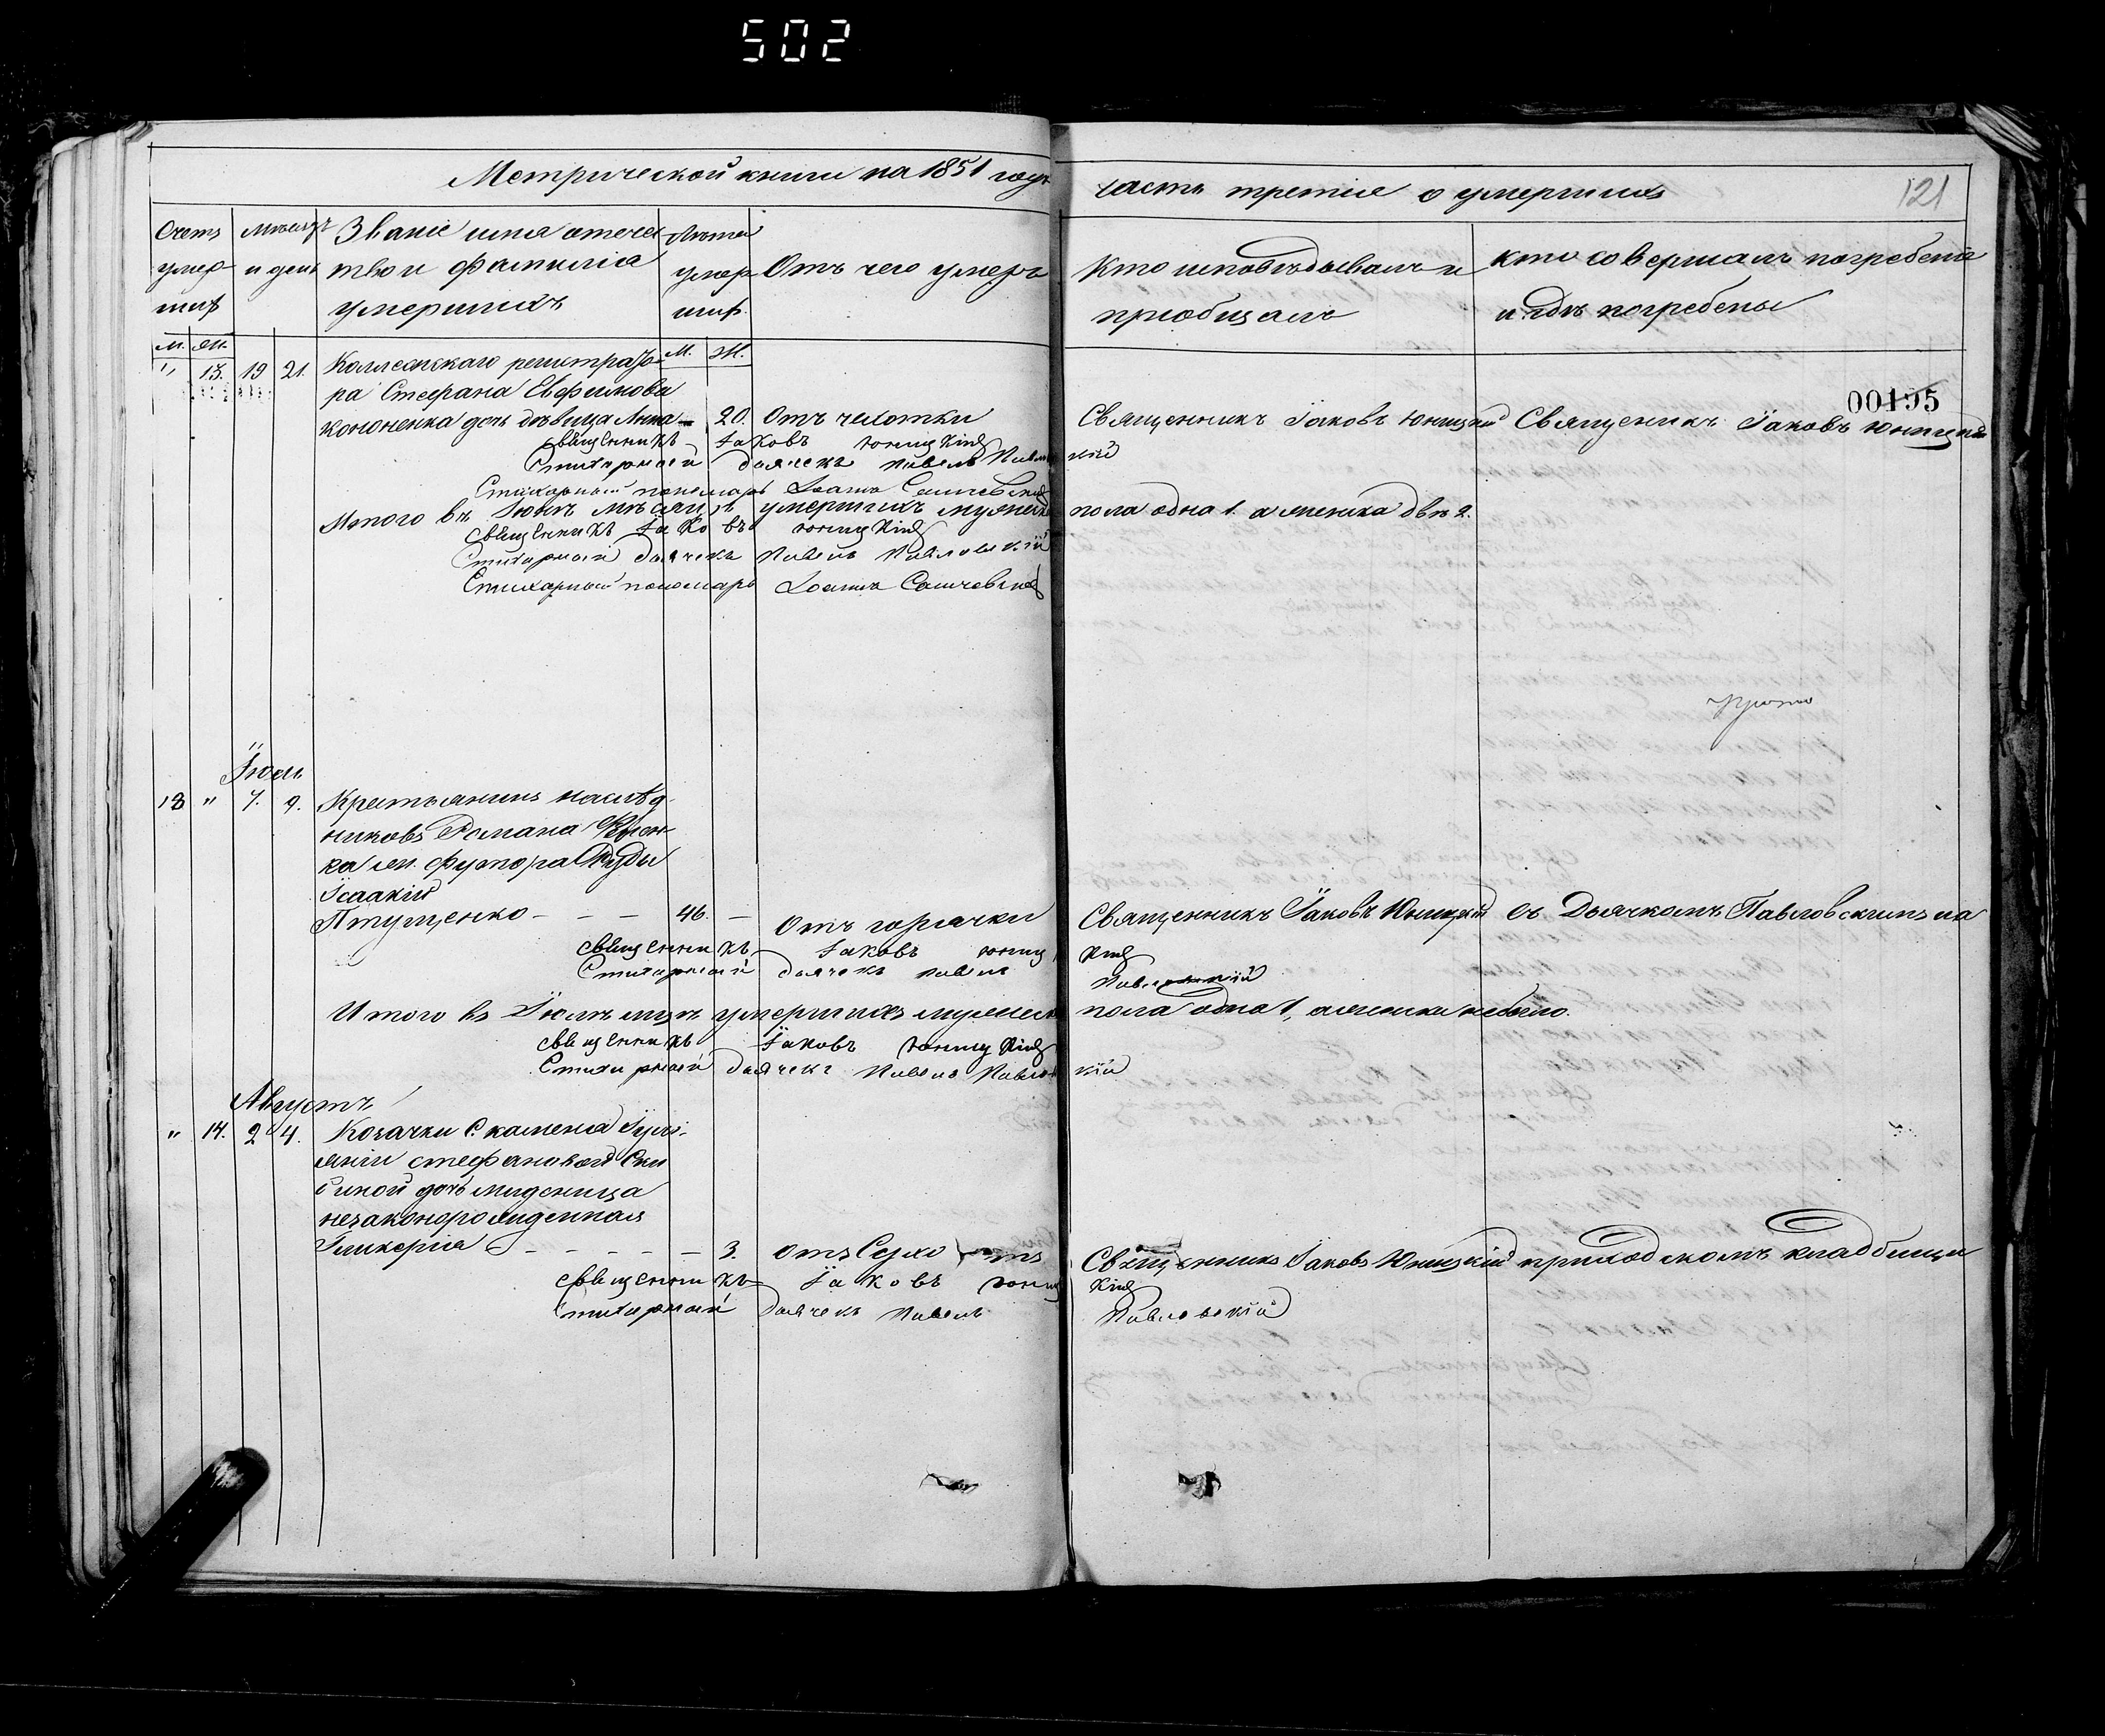 502
Метрической книги на 1851 годъ
часть третія о умершихъ
121
Счетъ умер шихъ
Мѣсяцъ и день
Званіе имя отече
ство и фамилія
умершихъ
Лѣта умер ших.
Отъ чего умеръ
Кто исповѣдывалъ и
пріобщалъ
кто совершалъ погребеніе
и гдѣ погребены
м. ж.
М. Ж.
00195
" 13. 19 21. Коллежскаго регистрато
ра Стефана Евфимова
кононенка дочь дѣвица Анна 20. Отъ чахотки Священникъ Іаковъ Юницкій Священикъ Іаковъ Юницкій
священникъ Іаковъ юницкій
Стихарный дьячекъ Павелъ Павловскій
Стихарный пономарь Іоаннъ
Итого въ Іюнѣ мѣсяцѣ умершихъ мужеска пола одна 1. а женска двѣ 2.
священникъ Іаковъ юницкій
Стихарный дьячекъ Павелъ Павловскій
Стихарный пономарь Іоаннъ
Іюль
13 " 7. 9. Крестьянинъ наслѣд
никовъ Романа
ка жи. футора Руды
Ісаакій
Птущенко - - - 46. - Отъ горячки Священникъ Іаковъ Юницкій съ Дьячкомъ Павловскимъ на
священникъ Іаковъ юницкій
Стихарный дьячекъ Павелъ Павловскій
Итого въ Іюлѣ мцѣ умершихъ мужеска пола одна 1, а женска небыло.
священникъ Іаковъ юницкій
Стихарный дьячекъ Павелъ Павловскій
Августъ
" 14. 2 4. Козачки С. каменя Іулі
яніи стефановой
дочь младеница
незаконорожденная
Гликерія - - - - - 3. отъ Сухотъ Священникъ Іаковъ Юницкій приходскомъ кладбищи
священникъ Іаковъ юницкій
Стихарный дьячекъ Павелъ Павловскій